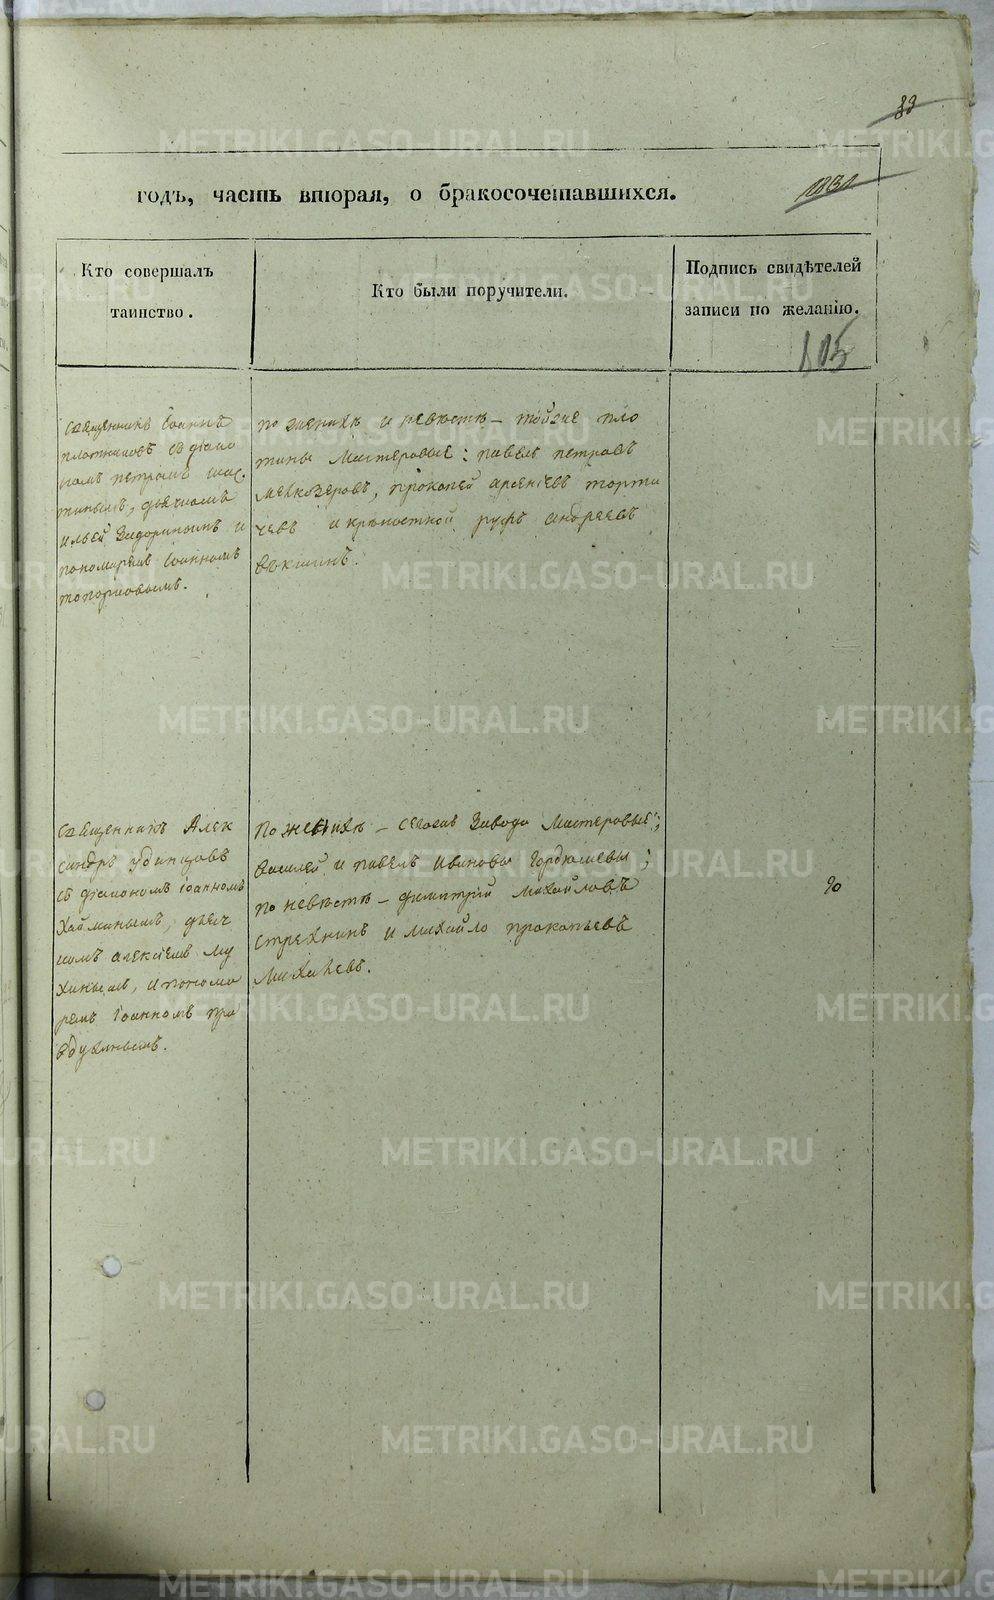 83
годъ, часть вторая, о бракосочетавшихся.
Кто совершалъ
таинство.
Кто были поручители.
Подпись свидѣтелей
записи по желанію.
105
Священникъ Іоаннъ
Плотниковъ съ діако
номъ петромъ
дьячкомъ
Ильей и
пономаремъ Іоанномъ
топорковымъ.
по женихѣ и невѣстѣ – тойже пло
тины Мастеровые: павелъ петровъ
Мелкозеровъ, прокопей арсеніевъ
и крѣпостной руфъ андреевъ
Векшинъ.
Священникъ Алек
сандръ Удинцовъ
съ діакономъ іоанномъ
дьяч
комъ алексѣемъ Му
хинымъ, и понома
ремъ іоанномъ пра
вдухинымъ.
По женихѣ – сегоже Завода Мастеровые;
Василей и павелъ Ивановы Гордюшевы;
по невѣстѣ – димитрій михайловъ
Стрехнинъ и михайло прокопьевъ
Михѣевъ.
METRIKI.GASO-URAL.RU